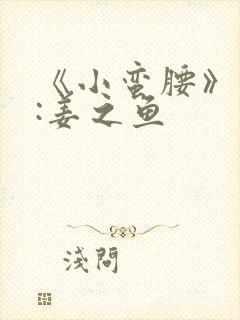 《小蛮腰》
:姜之鱼
淺問